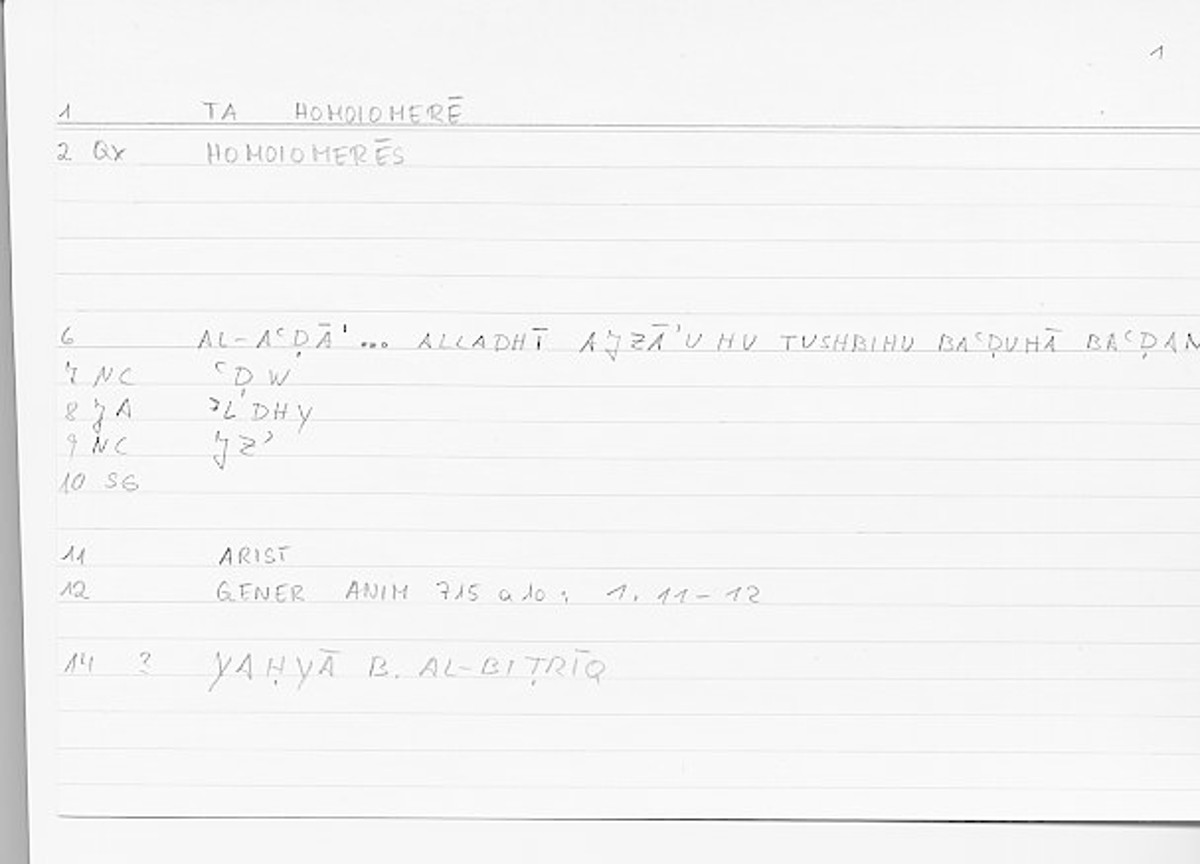 1
1 TA HOMOIOMERĒ
2 Qx HOMOIOMERĒS
6 AL-AʿḌĀʾ... ALLADHĪ AJZĀʾU HU TUSHBIHU BAʿḌUHĀ BAʿḌAN
7 NC ʿḌW
8 JA ʾLDHY
9 NC JZʾ
10 SG
11 ARIST
12 GENER ANIM 715 a 10; 1. 11-12
14 ? YAḤYĀ B. AL-BIṬRĪQ